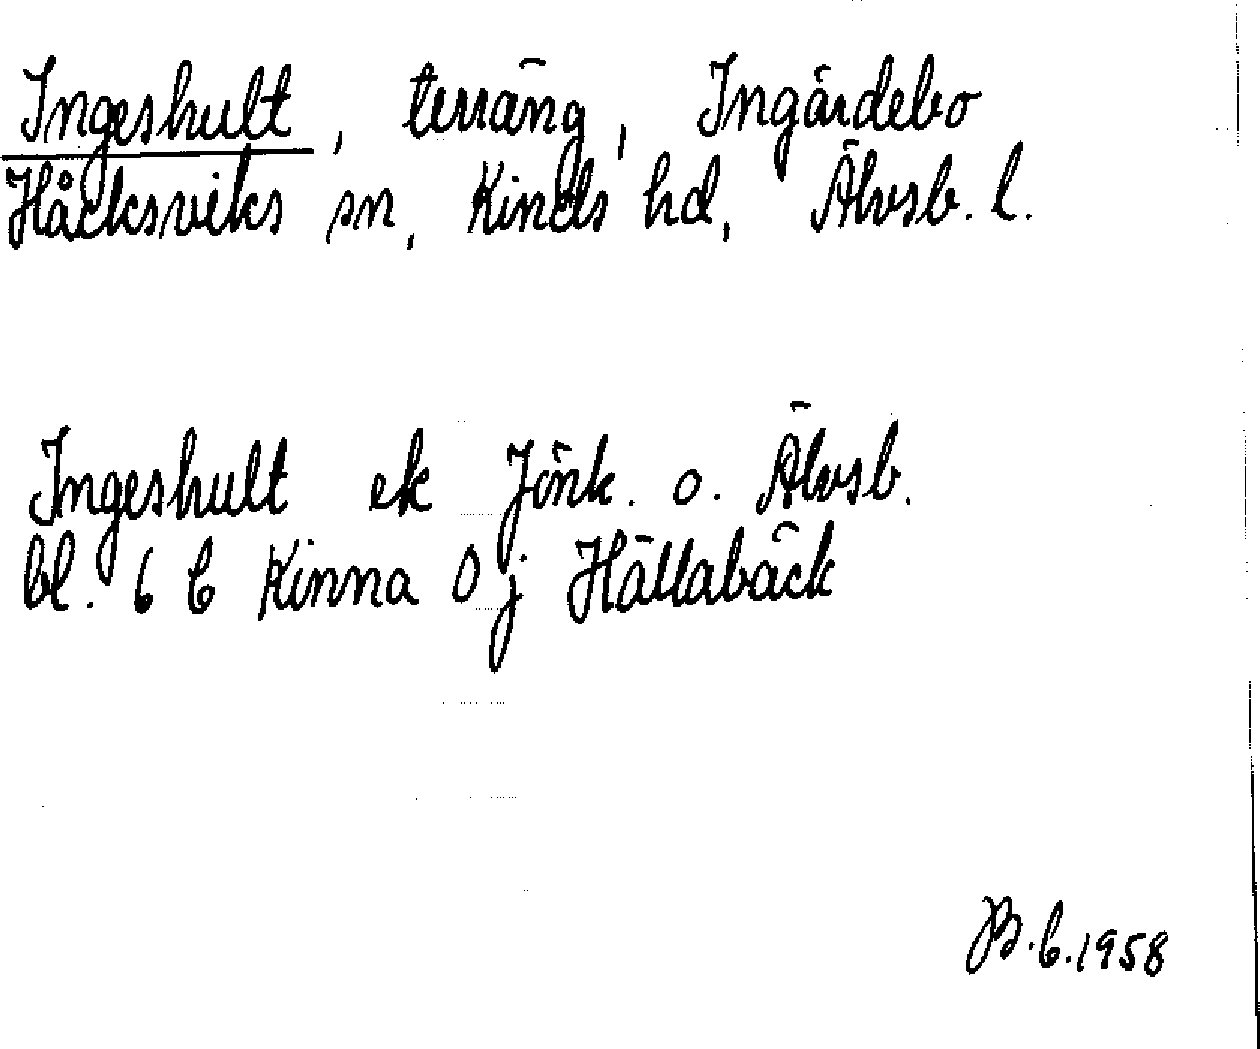 Ingeshult, terräng, Ingärdebo
Håcksviks sn, Kinds hd, Älvsb. l.
Ingeshult ek Jönk. o. Älvsb.
bl. 6 C Kinna 0 j Hällabäck
B.C.1958